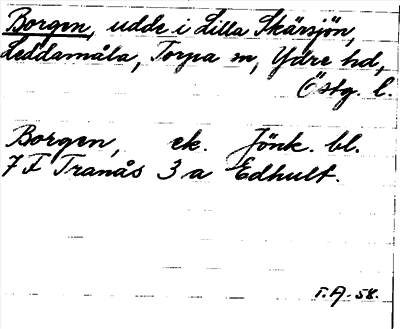 Borgen, udde i Lilla Skärsjön,
Leddamåla, Torpa sn, Ydre hd,
Östg. l.
Borgen, ek. Jönk. bl.
7 F Tranås 3 a Edhult.
T.A. 58.